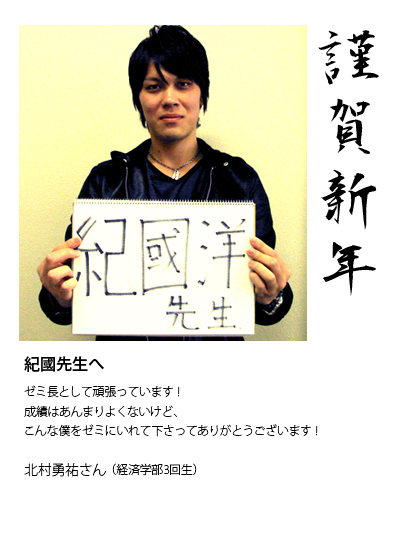 謹賀新年
紀國洋
先生
紀國先生へ
ゼミ長として頑張っています！
成績はあんまりよくないけど、
こんな僕をゼミにいれて下さってありがとうございます！
北村勇祐さん（経済学部3回生）